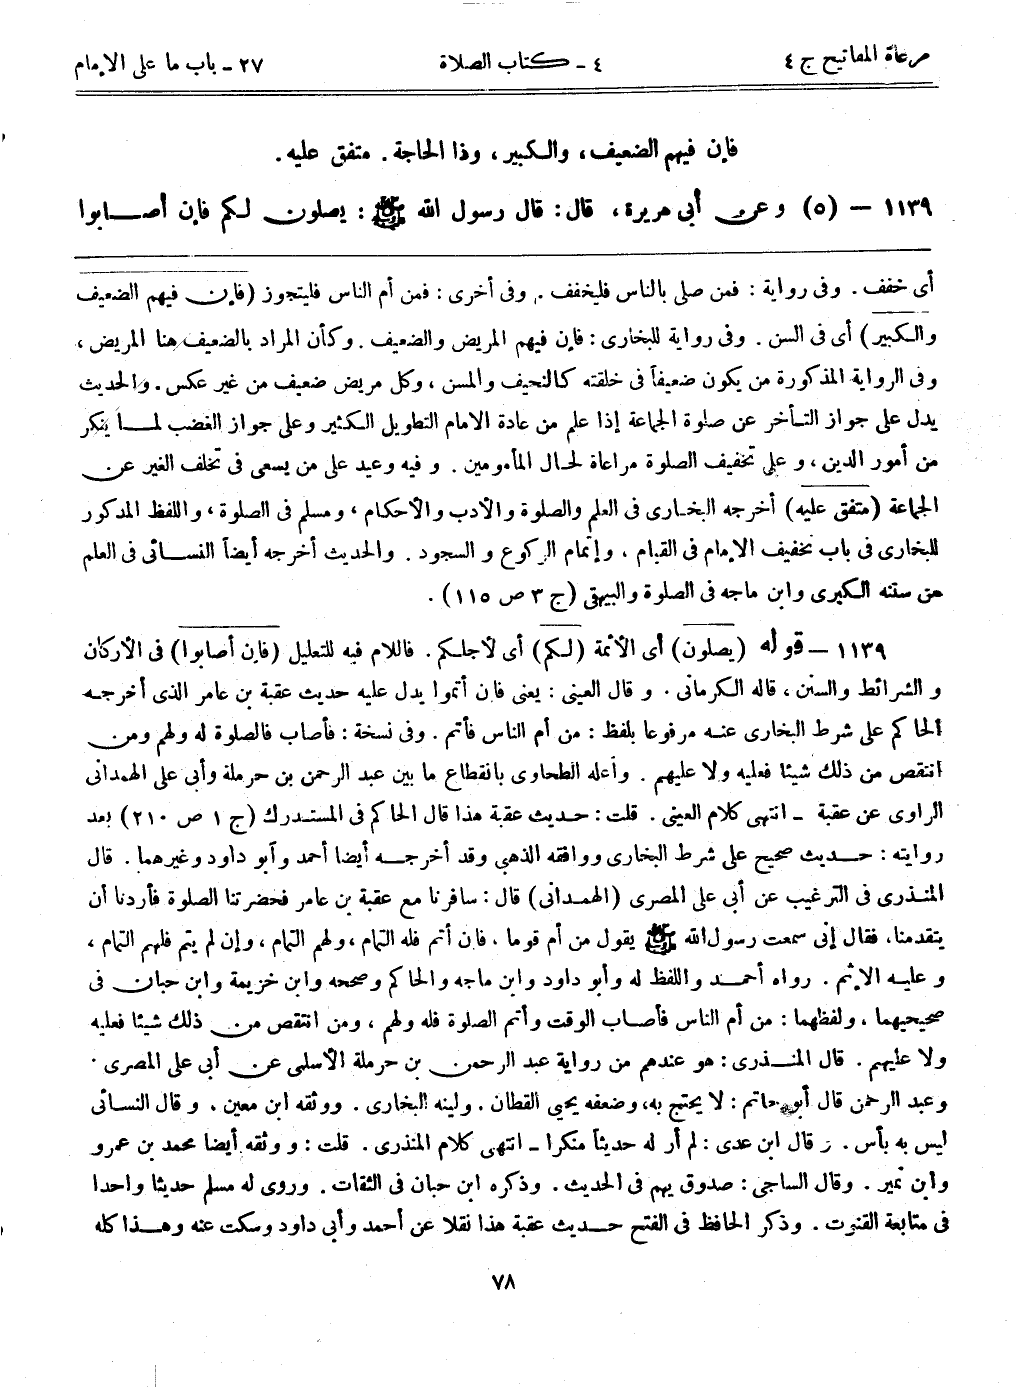 مرعاة المفاتيح ج ٤
٤ ـ كتاب الصلاة
٢٧ ـ باب ما على الإمام
فإن فيهم الضعيف، والكبير، وذا الحاجة. متفق عليه.
١١٣٩ – (٥) وعن أبي هريرة، قال: قال رسول الله ﷺ: يصلون لكم فإن أصابوا
أى خفف. وفى رواية: فمن صلى بالناس فليخفف. وفى أخرى: فمن أم الناس فليتجوز (فإن فيهم الضعيف
والكبير) أى فى السن. وفى رواية للبخارى: فإن فيهم المريض والضعيف. وكأن المراد بالضعيف هنا المريض،
وفى الرواية المذكورة من يكون ضعيفاً فى خلقته كالنحيف والمسن، وكل مريض ضعيف من غير عكس. والحديث
يدل على جواز التأخر عن صلوة الجماعة إذا علم من عادة الامام التطويل الكثير وعلى جواز الغضب لما ينكر
من أمور الدين، و على تخفيف الصلوة مراعاة لحال المأمومين. و فيه وعيد على من يسعى فى تخلف الغير عن
الجماعة (متفق عليه) أخرجه البخارى فى العلم والصلوة والأدب والأحكام، ومسلم فى الصلوة، واللفظ المذكور
للبخارى فى باب تخفيف الإمام فى القيام، وإتمام الركوع و السجود. والحديث أخرجه أيضاً النسائى فى العلم
من سننه الكبرى وابن ماجه فى الصلوة والبيهقى (ج ٣ ص ١١٥).
١١٣٩ – قوله (يصلون) أى الأئمة (لكم) أى لأجلكم. فاللام فيه للتعليل (فإن أصابوا) فى الأركان
و الشرائط والسنن، قاله الكرمانى. و قال العينى: يعنى فان أتموا يدل عليه حديث عقبة بن عامر الذى أخرجه
الحاكم على شرط البخارى عنه مرفوعا بلفظ: من أم الناس فأتم. وفى نسخة: فأصاب فالصلوة له ولهم ومن
انتقص من ذلك شيئا فعليه ولا عليهم. وأعله الطحاوى بانقطاع ما بين عبد الرحمن بن حرملة وأبى على الهمدانى
الراوى عن عقبة ـ انتهى كلام العينى. قلت: حديث عقبة هذا قال الحاكم فى المستدرك (ج ١ ص ٢١٠) بعد
روايته: حديث صحيح على شرط البخارى ووافقه الذهبى وقد أخرجه أيضا أحمد وأبو داود وغيرهما. قال
المنذرى فى الترغيب عن أبى على المصرى (الهمدانى) قال: سافرنا مع عقبة بن عامر فحضرتنا الصلوة فأردنا أن
يتقدمنا، فقال إنى سمعت رسول الله ﷺ يقول من أم قوما، فان أتم فله التمام، ولهم التمام، وإن لم يتم فلهم التمام،
و عليه الإثم. رواه أحمد واللفظ له وأبو داود وابن ماجه والحاكم وصححه وابن خزيمة وابن حبان فى
صحيحيهما، ولفظهما: من أم الناس فأصاب الوقت وأتم الصلوة فله ولهم، ومن انتقص من ذلك شيئا فعليه
ولا عليهم. قال المنذرى: هو عندهم من رواية عبد الرحمن بن حرملة الأسلمى عن أبى على المصرى.
وعبد الرحمن قال أبو حاتم: لا يحتج به، وضعفه يحيى القطان. ولينه البخارى. ووثقه ابن معين. و قال النسائى
ليس به بأس. و قال ابن عدى: لم أر له حديثاً منكرا ـ انتهى كلام المنذرى. قلت: و وثقه أيضا محمد بن عمرو
وابن نمير. وقال الساجى: صدوق يهم فى الحديث. وذكره ابن حبان فى الثقات. وروى له مسلم حديثا واحدا
فى متابعة القنوت. وذكر الحافظ فى الفتح حديث عقبة هذا نقلا عن أحمد وأبى داود وسكت عنه وهذا كله
٧٨